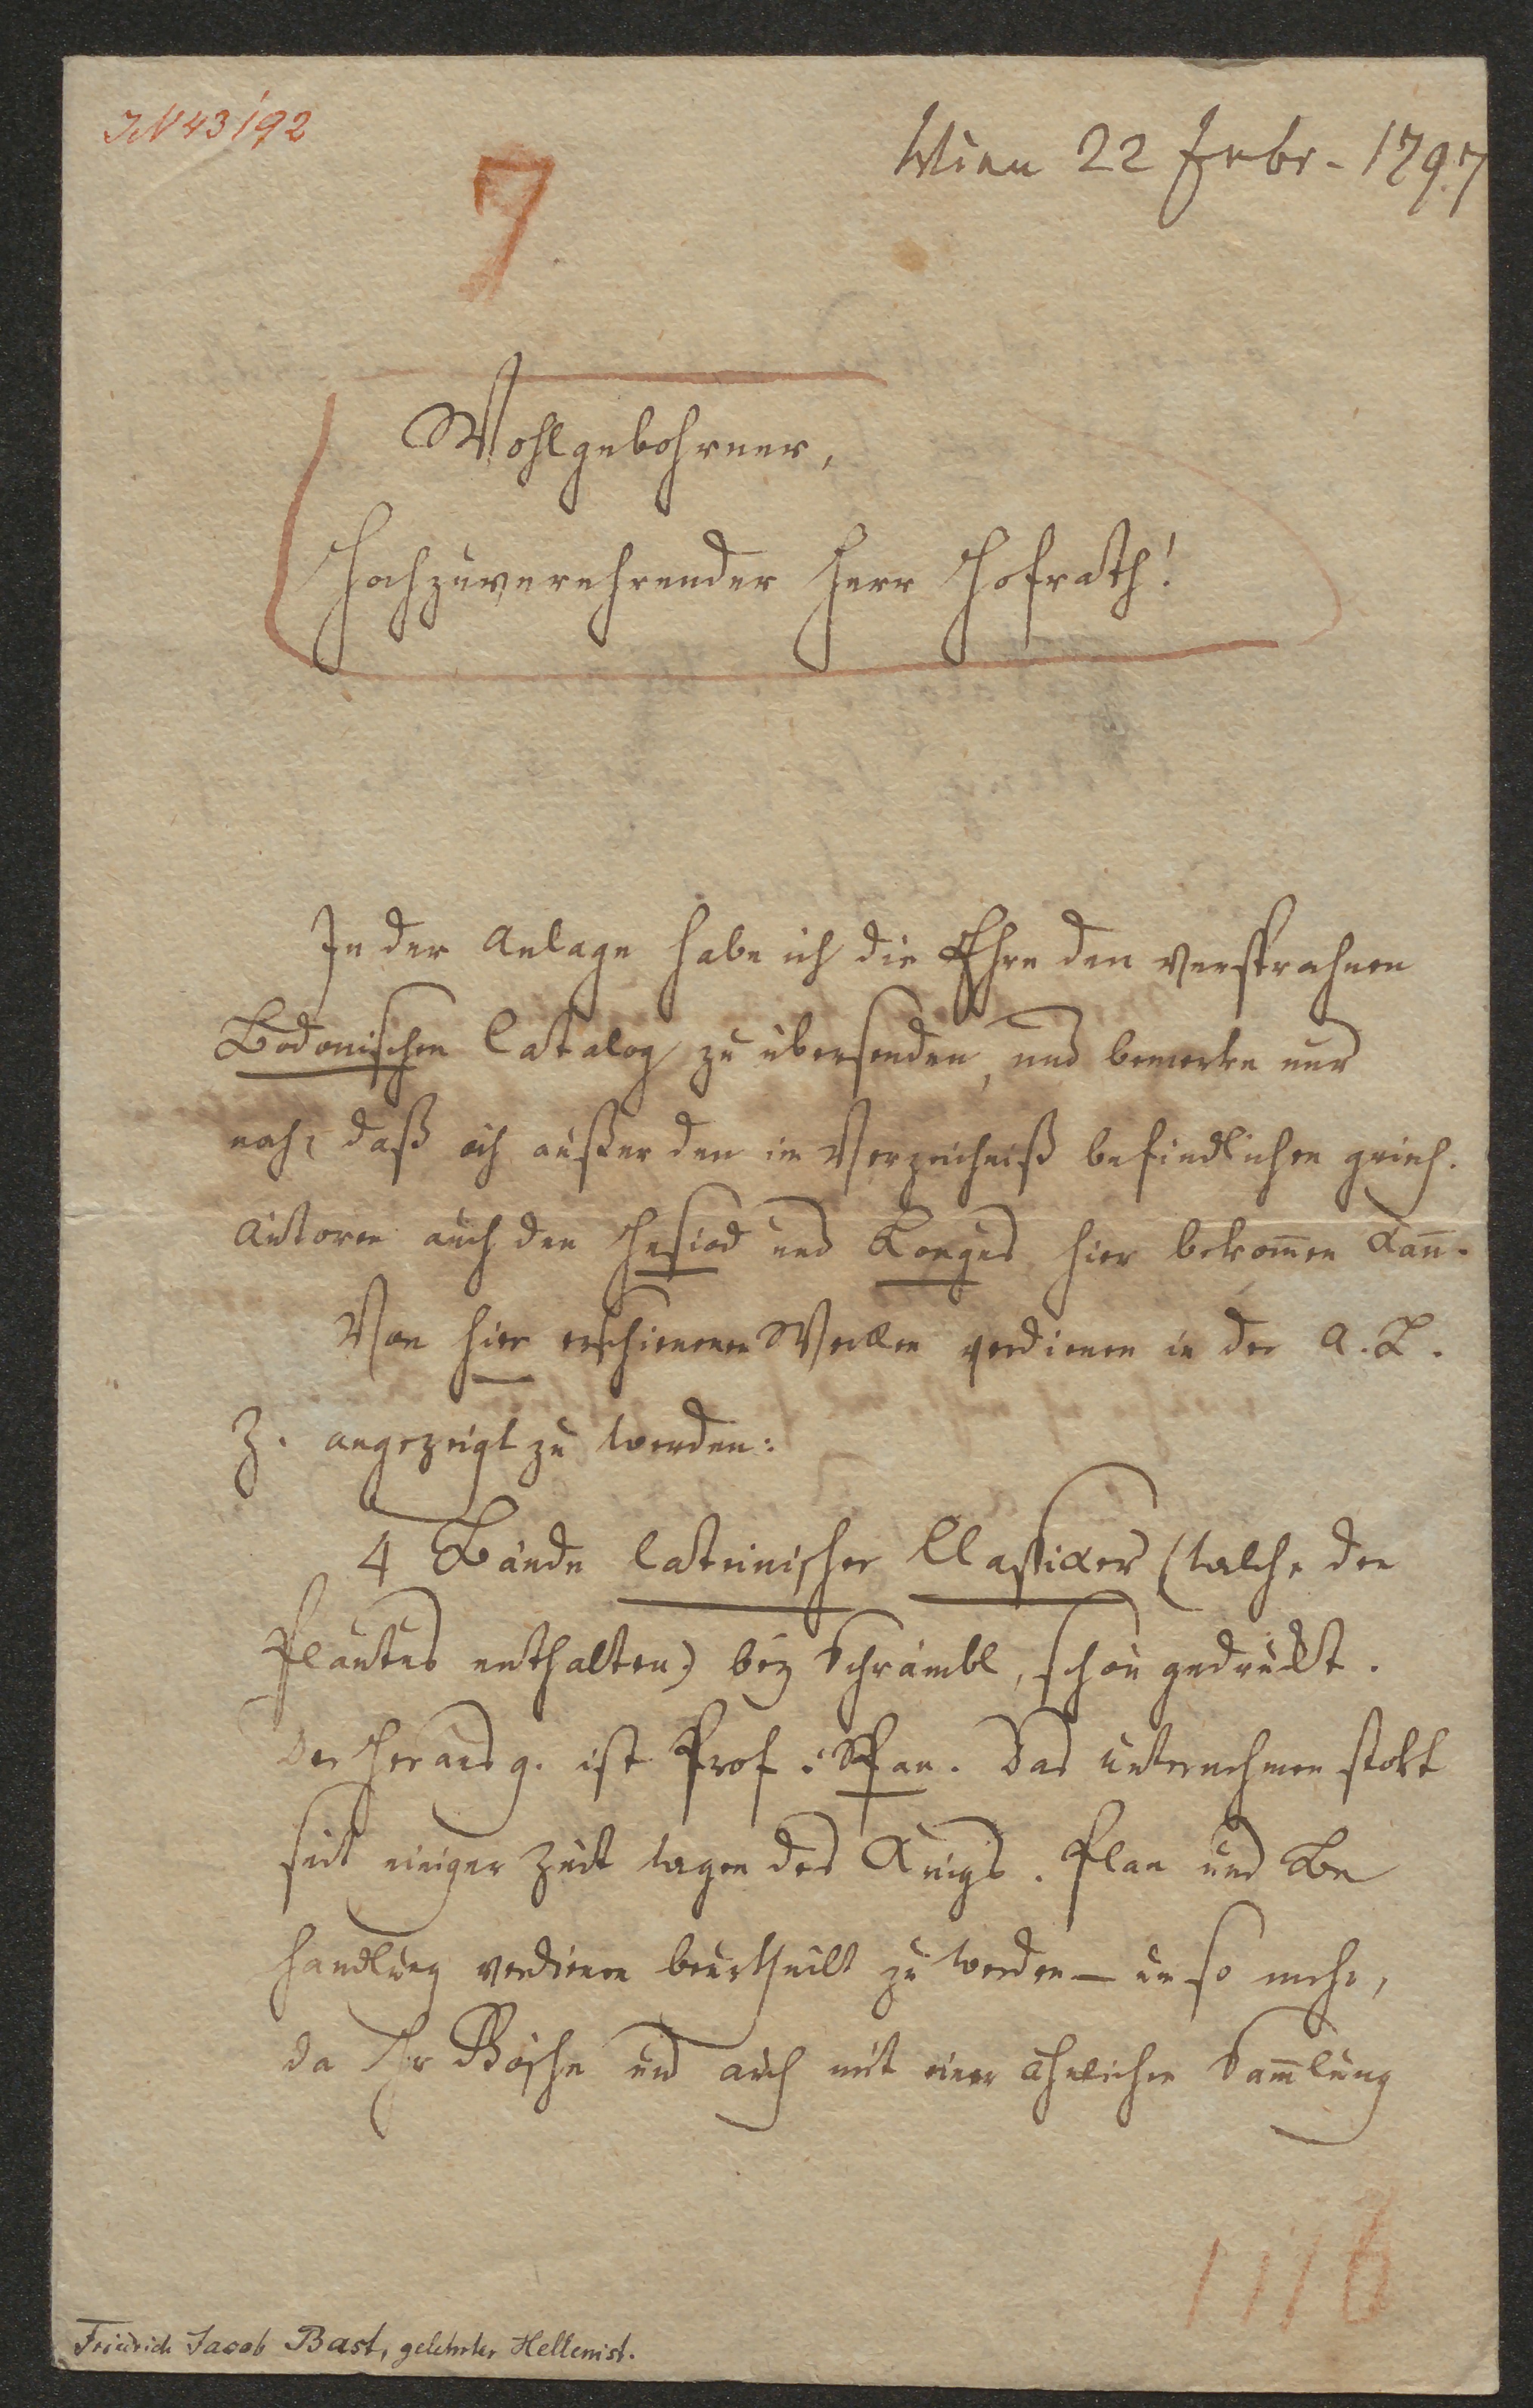 IN 43192
7
Wien 22 Febr. 1797
Wohlgebohrner,
Hochzuverehrender Herr Hofrath!
In der Anlage habe ich die Ehre den versprochnen
Bodonischen Catalog zu übersenden, und bemerke nur
noch, daß ich außer den im Verzeichniß befindlichen griech.
Autoren auch den Hesiod und Longus hier bekom̄en kan̄.
Von hier erschienenen Werken verdienen in der A. L.
Z. angezeigt zu werden:
4 Bände lateinischer Classiker (welche den
Plautus enthalten) bey Schrämbl, schön gedruckt.
Der Herausg. ist Prof. Span. Das Unternehmen stokt
seit einiger Zeit wegen des Kriegs. Plan und Be
handlung verdienen beurtheilt zu werden – um so mehr,
da Hr und auch mit einer ähnlichen Sam̄lung
1116
Friedrich Jacob Bast, gelehrter Hellenist.